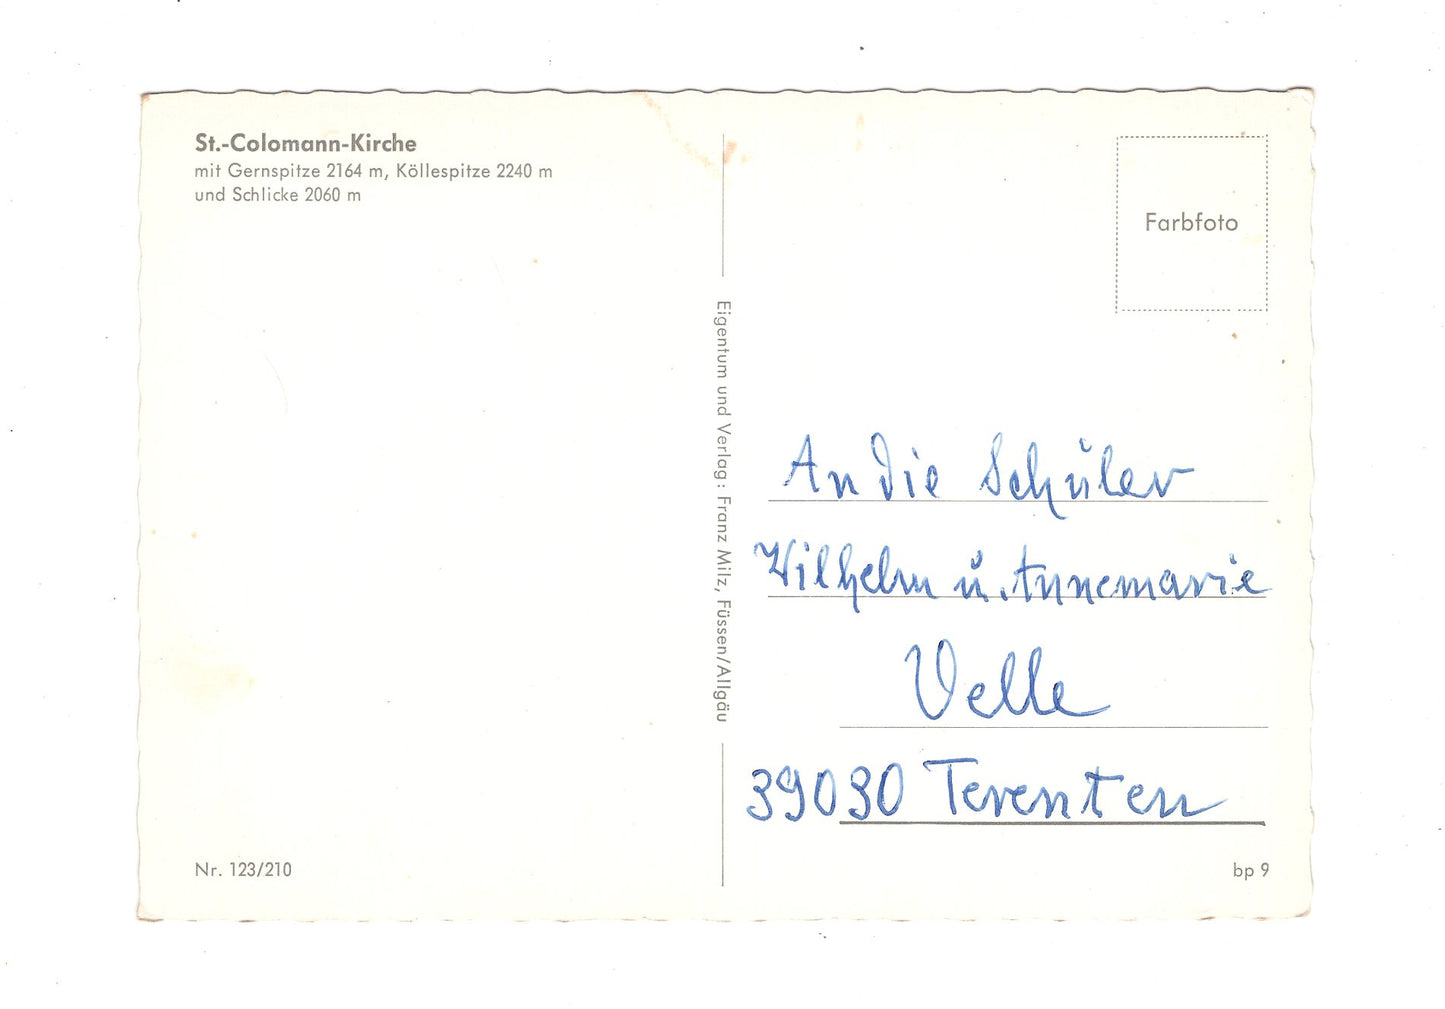 St.-Colomann-Kirche
mit Gernspitze 2164 m, Köllespitze 2240 m
und Schlicke 2060 m
Nr. 123/210
Eigentum und Verlag: Franz Milz, Füssen/Allgäu
Farbfoto
An die Schüler
Wilhelm u. Annemarie
Velle
39030 Terenten
bp 9